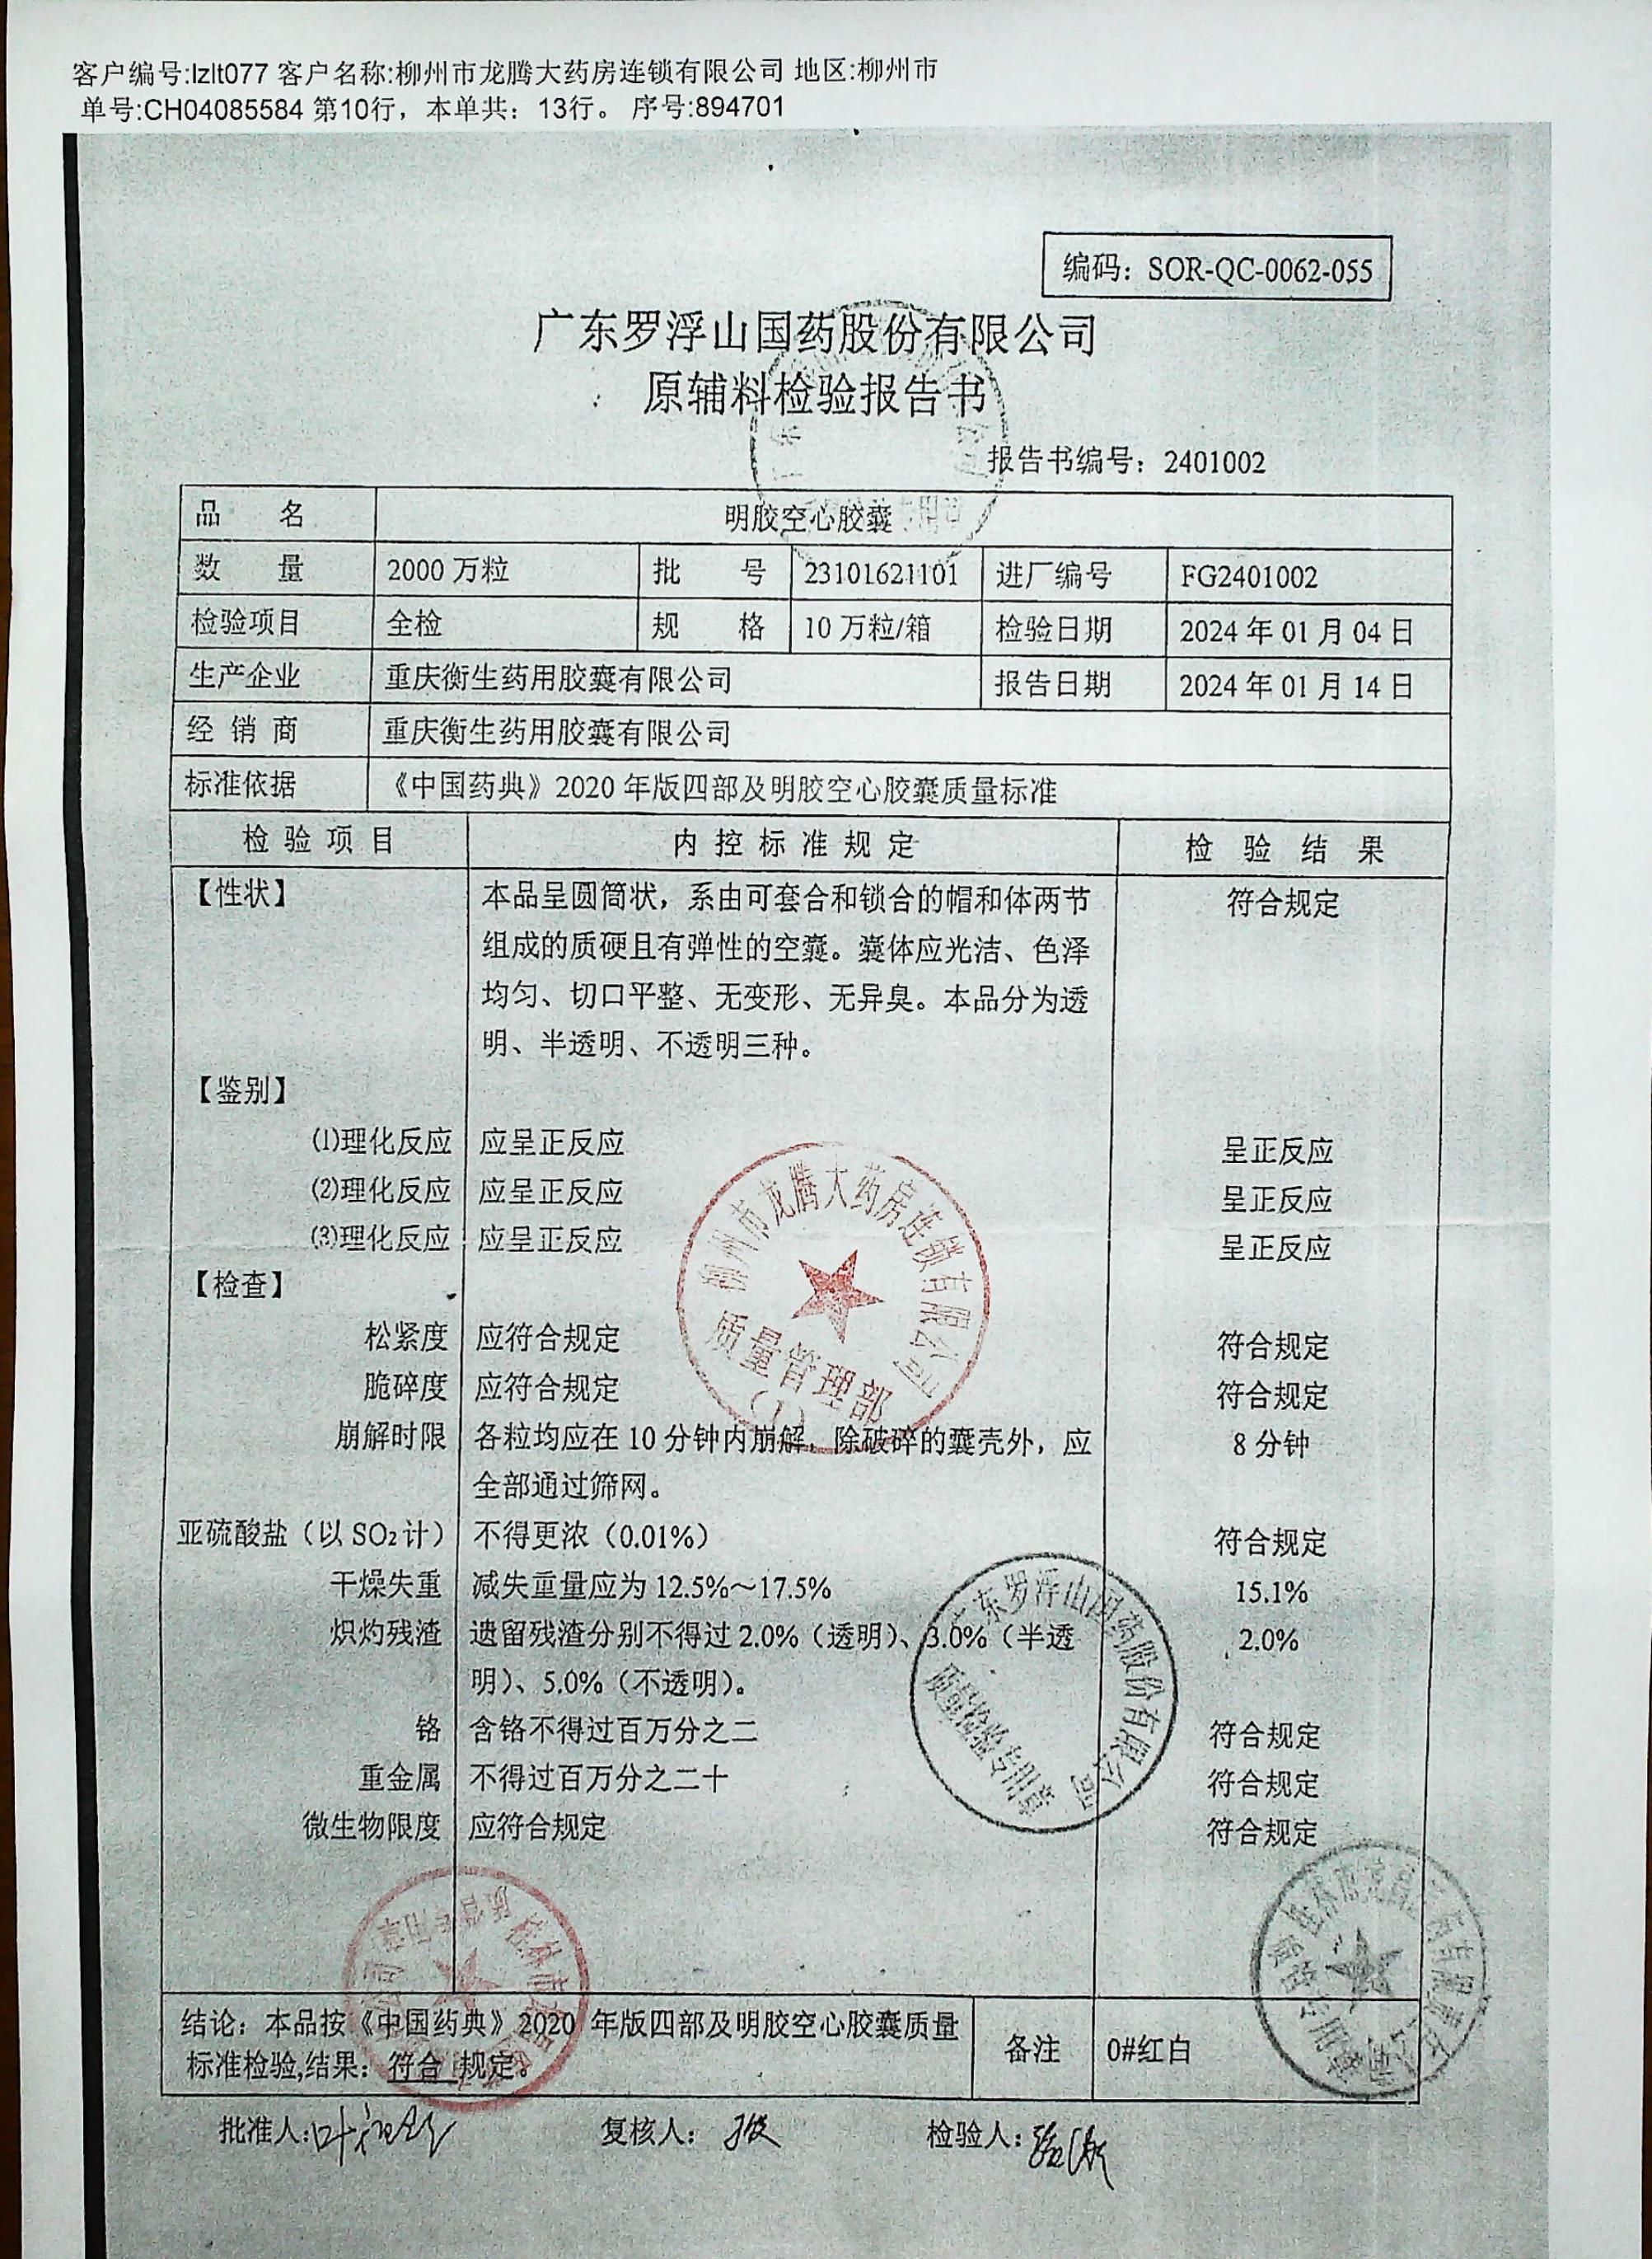 客户编号:lzlt077 客户名称:柳州市龙腾大药房连锁有限公司 地区:柳州市
单号:CH04085584 第10行，本单共：13行。 序号:894701
编码：SOR-QC-0062-055
广东罗浮山国药股份有限公司
原辅料检验报告书
报告书编号：2401002
品 名 明胶空心胶囊
数 量 2000 万粒 批 号 23101621101 进厂编号 FG2401002
检验项目 全检 规 格 10 万粒/箱 检验日期 2024 年 01 月 04 日
生产企业 重庆衡生药用胶囊有限公司 报告日期 2024 年 01 月 14 日
经 销 商 重庆衡生药用胶囊有限公司
标准依据 《中国药典》2020 年版四部及明胶空心胶囊质量标准
检 验 项 目 内 控 标 准 规 定 检 验 结 果
【性状】 本品呈圆筒状，系由可套合和锁合的帽和体两节 符合规定
组成的质硬且有弹性的空囊。囊体应光洁、色泽
均匀、切口平整、无变形、无异臭。本品分为透
明、半透明、不透明三种。
【鉴别】
⑴理化反应 应呈正反应 呈正反应
⑵理化反应 应呈正反应 呈正反应
⑶理化反应 应呈正反应 呈正反应
【检查】
松紧度 应符合规定 符合规定
脆碎度 应符合规定 符合规定
崩解时限 各粒均应在 10 分钟内崩解，除破碎的囊壳外，应 8 分钟
全部通过筛网。
亚硫酸盐（以 SO₂计） 不得更浓（0.01%） 符合规定
干燥失重 减失重量应为 12.5%～17.5% 15.1%
炽灼残渣 遗留残渣分别不得过 2.0%（透明）、3.0%（半透 2.0%
明）、5.0%（不透明）。
铬 含铬不得过百万分之二 符合规定
重金属 不得过百万分之二十 符合规定
微生物限度 应符合规定 符合规定
柳州市龙腾大药房连锁有限公司
质量管理部
（1）
广东罗浮山国药股份有限公司
质量检验专用章
结论：本品按《中国药典》2020 年版四部及明胶空心胶囊质量 备注 0#红白
标准检验,结果：符合 规定。
批准人: 复核人： 检验人：